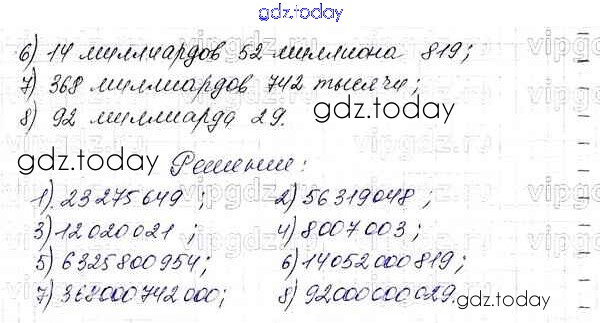 gdz.today
6) 14 миллиардов 52 миллиона 819;
7) 368 миллиардов 742 тысячи;
8) 92 миллиарда 29.
gdz.today
gdz.today
Решение:
1) 23275649; 2) 56319048;
3) 12020021; 4) 8007003;
5) 6325800954; 6) 14052000819;
7) 368000742000; 8) 92000000029.
gdz.today